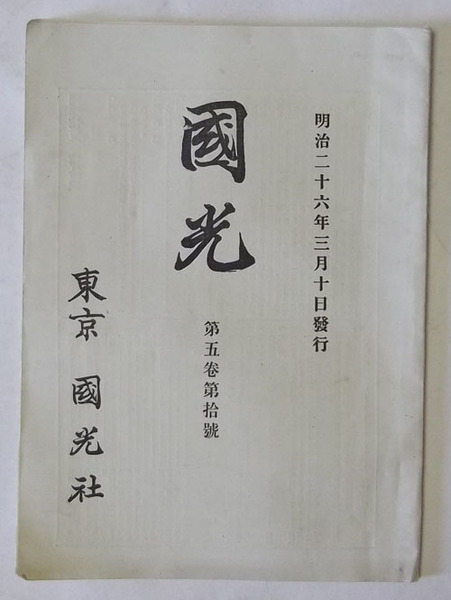 明治二十六年三月十日發行
國光
第五卷第拾號
東京 國光社